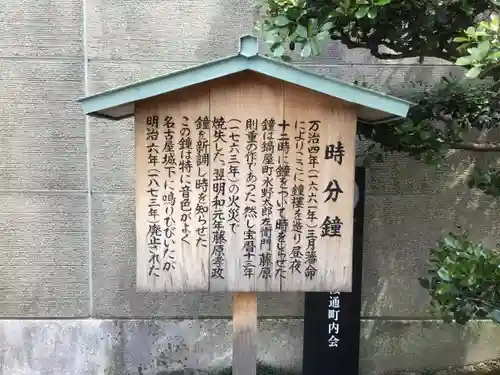 時鐘
万治四年(一六六一年)三月藩命
によりここに鐘樓を造り昼夜
十二時に鐘をついて時をしらせた
鐘は鍋屋町水野太郎左衛門藤原
則重の作であった然し宝暦十三年
(一七六三年)の火災で
焼失す、翌明和元年藤原孝政
鐘を新調し時を知らせた
この鐘は特に音色がよく
名古屋城下に鳴りひびいたが
明治六年(一八七三年)廃止された
通町内会